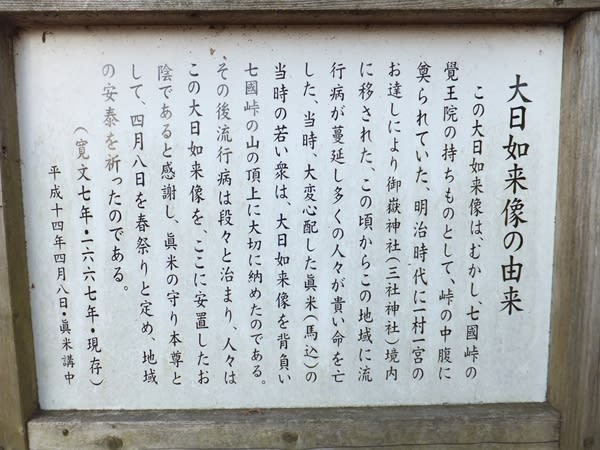 大日如来像の由来
この大日如来像は、むかし、七國峠の
覺王院の持ちものとして、峠の中腹に
奠られていた、明治時代に一村一宮の
お達しにより御嶽神社(三社神社)境内
に移された、この頃からこの地域に流
行病が蔓延し多くの人々が貴い命を亡
した、当時、大変心配した眞米(馬込)の
当時の若い衆は、大日如来像を背負い
七國峠の山の頂上に大切に納めたのである。
その後流行病は段々と治まり、人々は
この大日如来像を、ここに安置したお
陰であると感謝し、眞米の守り本尊と
して、四月八日を春祭りと定め、地域
の安泰を祈ったのである。
(寛文七年・一六六七年・現存)
平成十四年四月八日・眞米講中